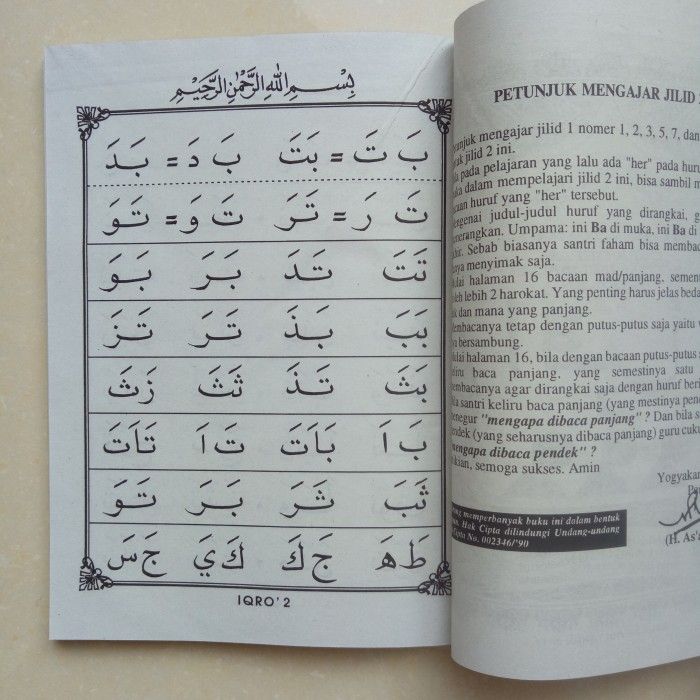 بِسْمِ اللهِ الرَّحْمٰنِ الرَّحِيْمِ
بَ تَ = بَتَ بَ دَ = بَدَ
تَ رَ = تَرَ تَ وَ = تَوَ
تَتَ تَدَ بَرَ بَوَ
بَبَ بَذَ تَرَ تَزَ
بَثَ تَذَ ثَثَ زَثَ
بَ اَ بَاَتَ تَ اَ تَاَتَ
ثَبَ ثَرَ بَرَ تَوَ
طَ هَ جَ كَ كَ يَ جَ سَ
IQRO' 2
PETUNJUK MENGAJAR JILID
mengajar jilid 1 nomer 1, 2, 3, 5, 7, dan
jilid 2 ini.
pada pelajaran yang lalu ada "her" pada
dalam mempelajari jilid 2 ini, bisa sambil
huruf yang "her" tersebut.
judul-judul huruf yang dirangkai,
Umpama: ini Ba di muka, ini Ba di
Sebab biasanya santri faham bisa
menyimak saja.
halaman 16 bacaan mad/panjang,
lebih 2 harokat. Yang penting harus jelas
dan mana yang panjang.
tetap dengan putus-putus saja yaitu
bersambung.
halaman 16, bila dengan bacaan putus-putus
baca panjang, yang semestinya satu
agar dirangkai saja dengan huruf
santri keliru baca panjang (yang mestinya
"mengapa dibaca panjang" ? Dan bila
(yang seharusnya dibaca panjang) guru
dibaca pendek" ?
semoga sukses. Amin
memperbanyak buku ini dalam bentuk
Hak Cipta dilindungi Undang-undang
No. 002346/'90